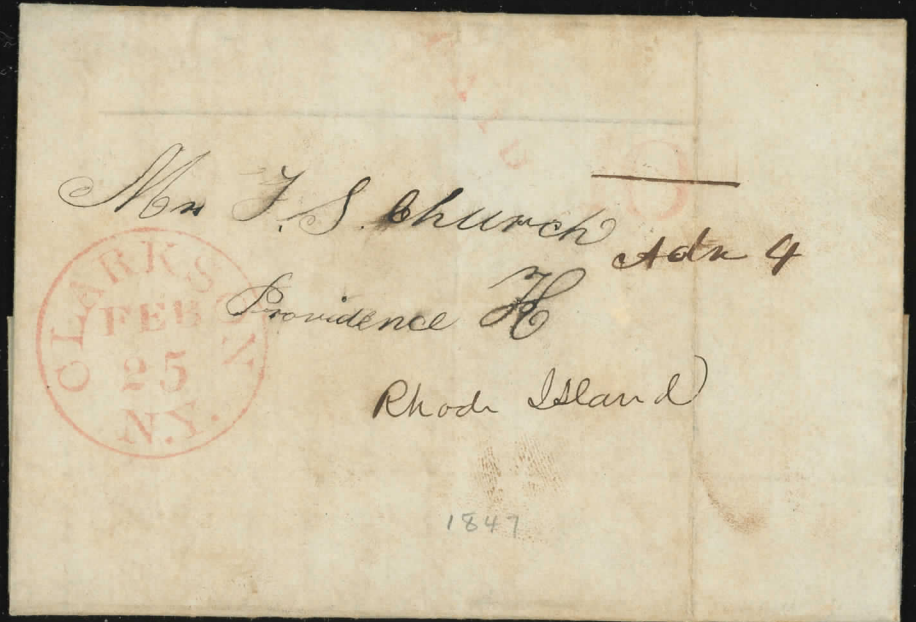 Mr F. S. Church
Adv 4
Providence
Rhode Island
CLARKSON
FEB
25
N.Y.
1847